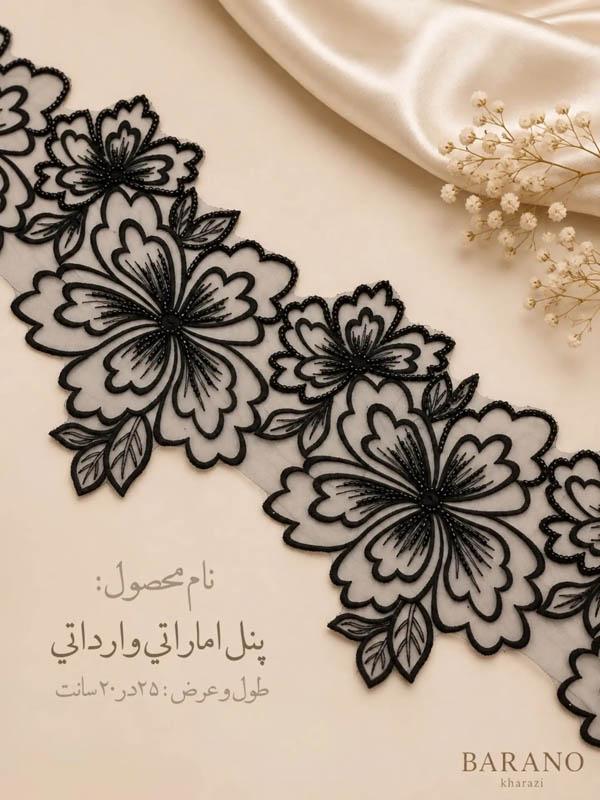 نام محصول:
پنل اماراتي وارداتي
طول و عرض: ۲۵در۲۰ سانت
BARANO
kharazi